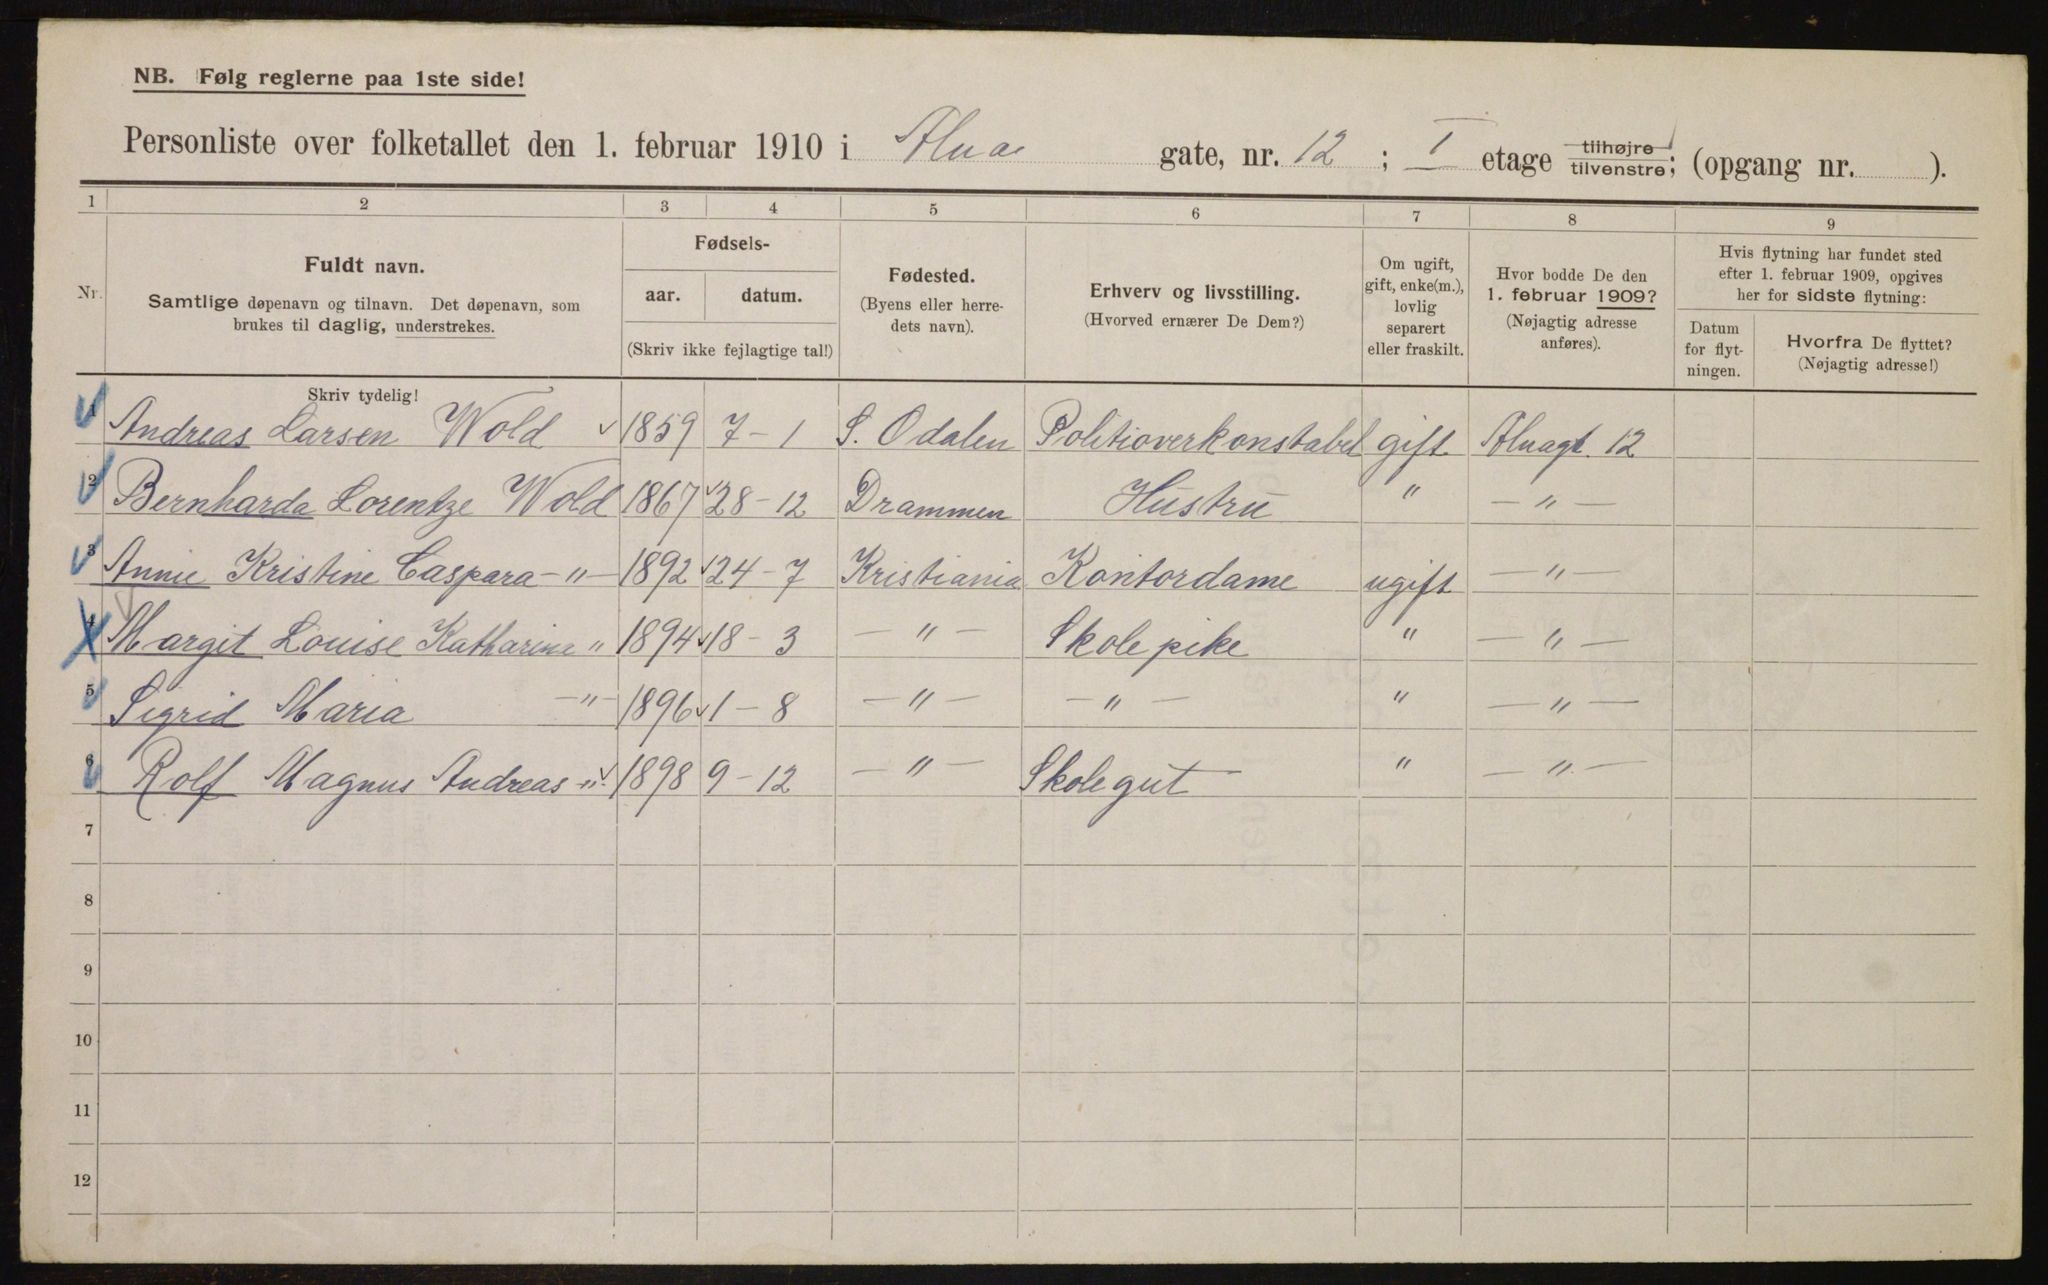 NB. Følg reglerne paa 1ste side!
Personliste over folketallet den 1. februar 1910 i Alna gate, nr. 12 ; I etage tilhøjre tilvenstre; (opgang nr. ).
1 2 3 4 5 6 7 8 9
Nr. Fuldt navn. Samtlige døpenavn og tilnavn. Det døpenavn, som brukes til daglig, understrekes.
Fødsels- aar. datum. (Skriv ikke fejlagtige tal!)
Fødested. (Byens eller herredets navn).
Erhverv og livsstilling. (Hvorved ernærer De Dem?)
Om ugift, gift, enke(m.), lovlig separert eller fraskilt.
Hvor bodde De den 1. februar 1909? (Nøjagtig adresse anføres).
Hvis flytning har fundet sted efter 1. februar 1909, opgives her for sidste flytning:
Datum for flytningen. Hvorfra De flyttet? (Nøjagtig adresse!)
Skriv tydelig!
1 Andreas Larsen Wold 1859 7-1 S. Odalen Politioverkonstabel gift Alnagt. 12
2 Bernharda Lorentze Wold 1867 28-12 Drammen Hustru " — " —
3 Annie Kristine Caspara — " — 1892 24-7 Kristiania Kontordame ugift — " —
4 Margit Louise Katharine " 1894 18-3 — " — Skolepike " — " —
5 Sigrid Maria — " — 1896 1-8 — " — — " — " — " —
6 Rolf Magnus Andreas — " — 1898 9-12 — " — Skolegut " — " —
7
8
9
10
11
12